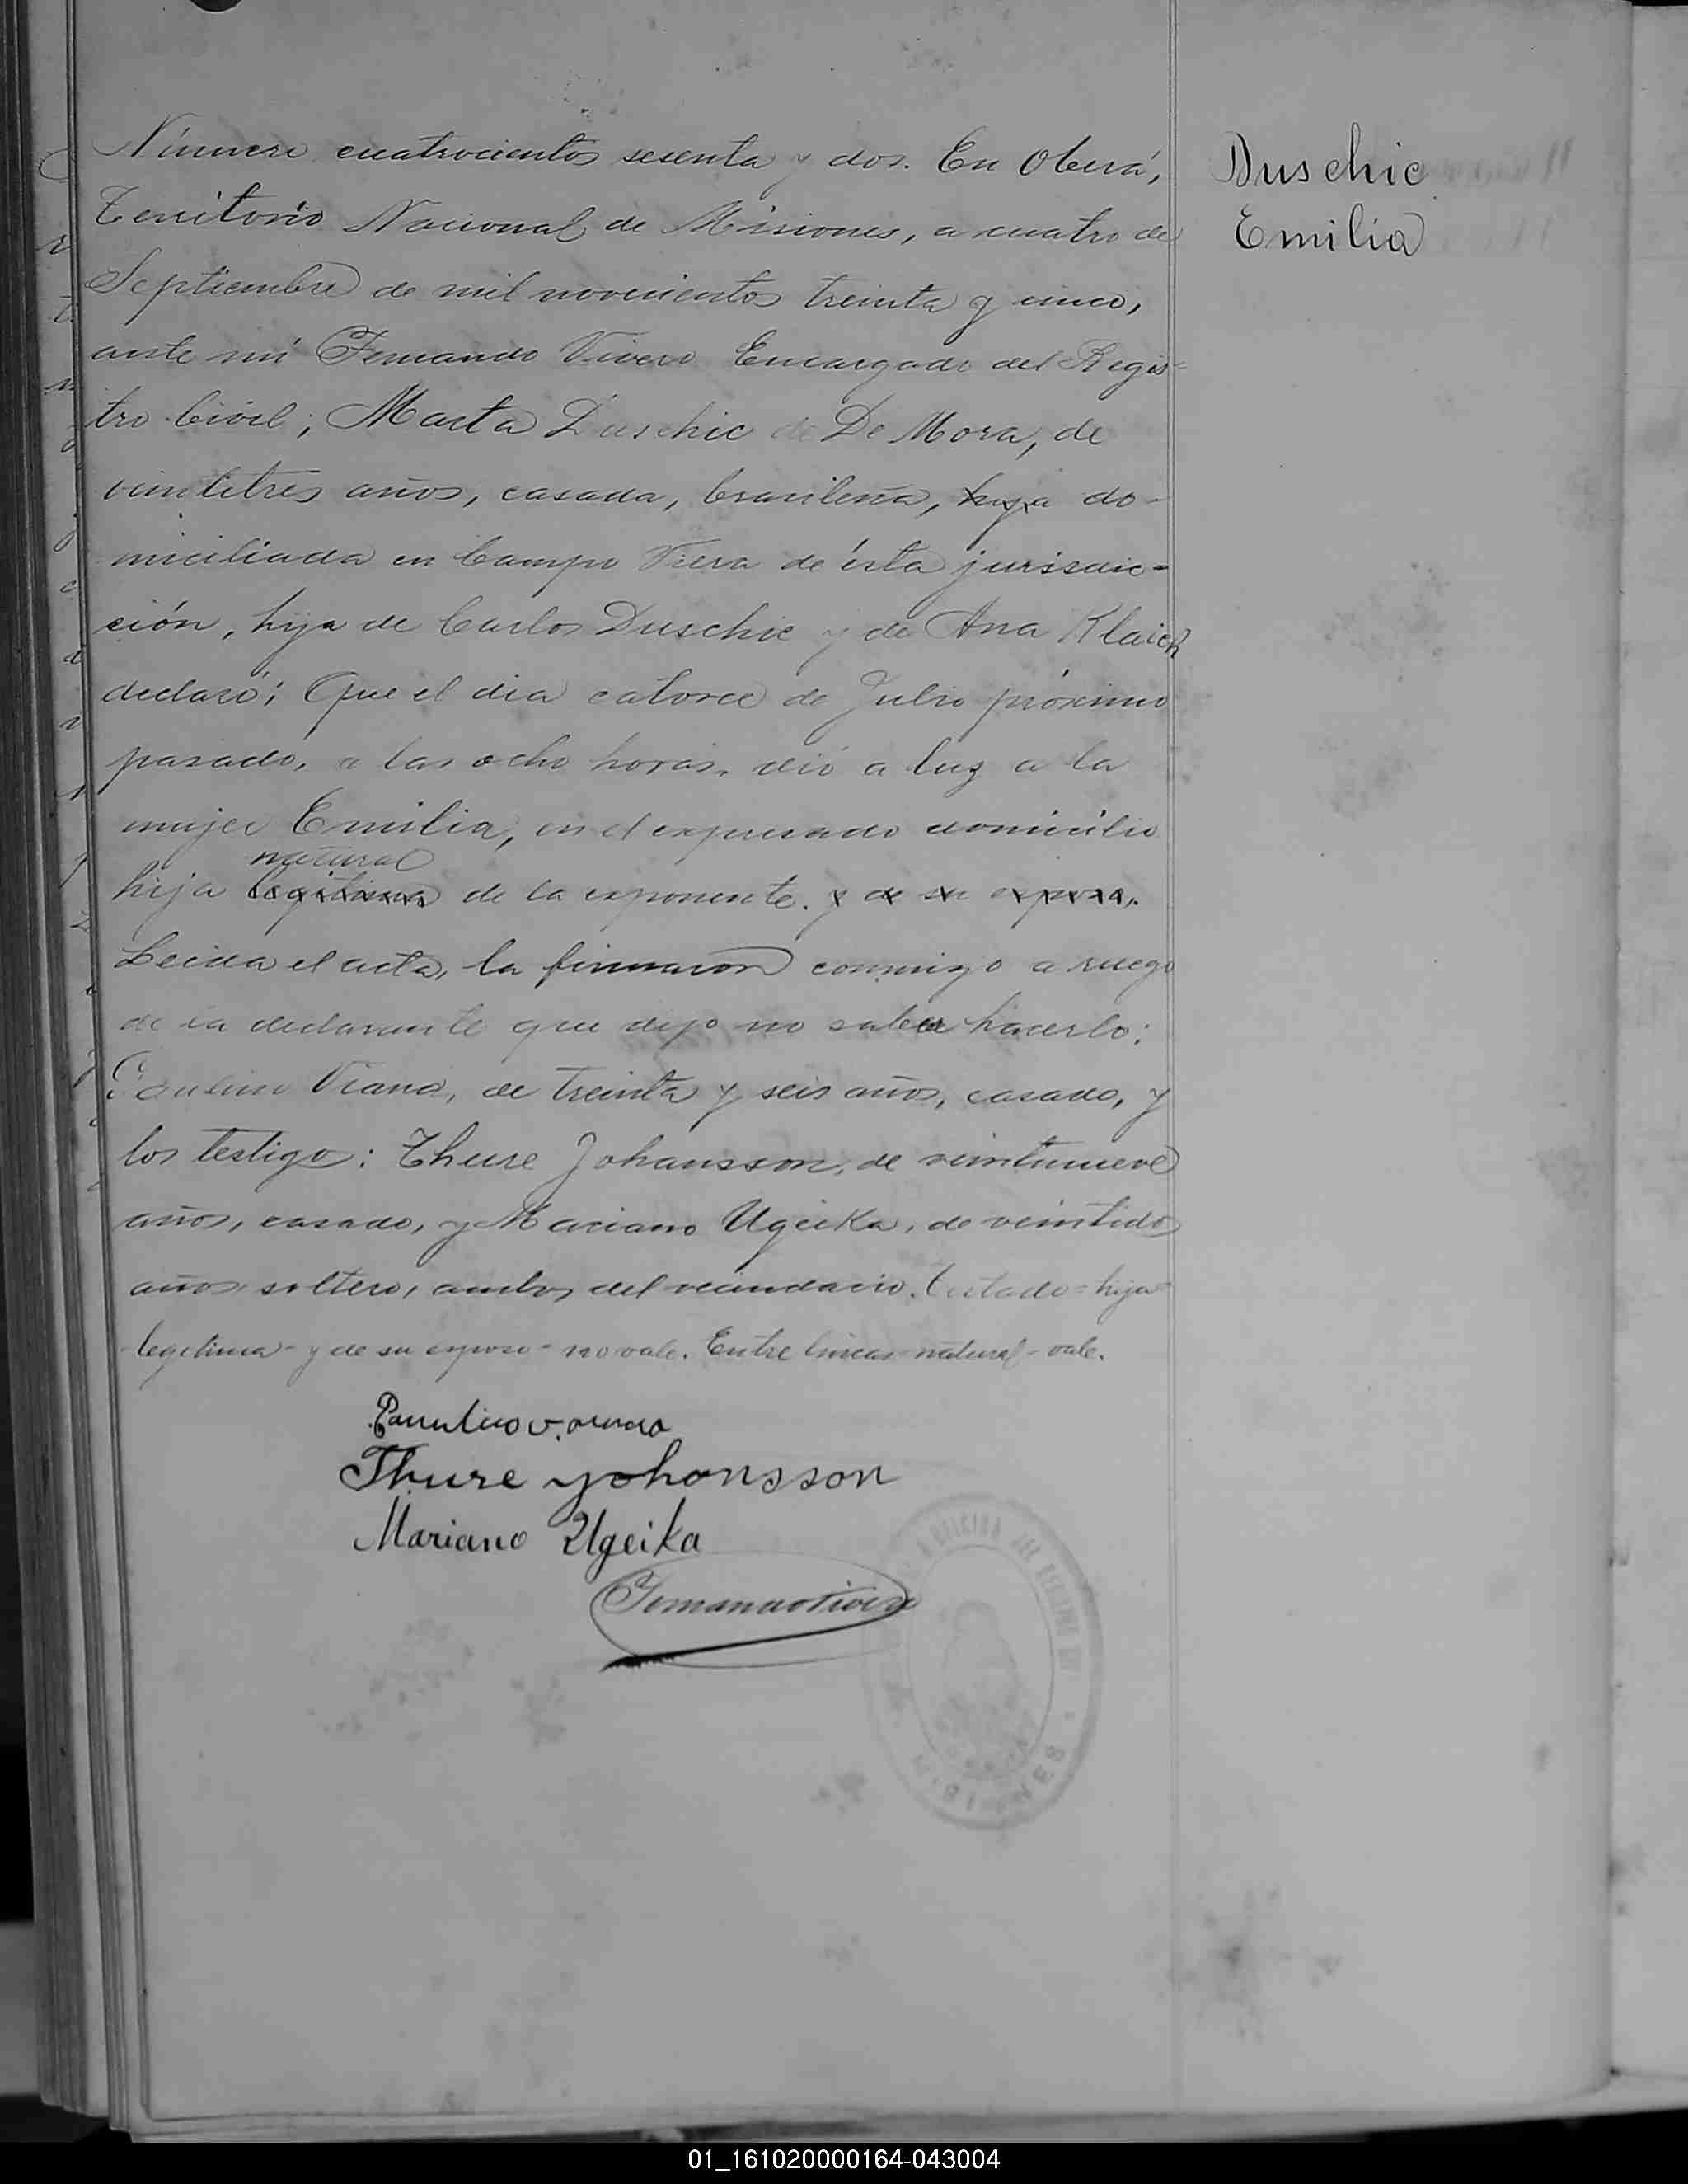 Número cuatrocientos sesenta y dos. En Oberá,
Territorio Nacional de Misiones, a cuatro de
Septiembre de mil novecientos treinta y cinco,
ante mí Fernando Vivero Encargado del Regis-
tro Civil; Marta Duschic de De Mora, de
veintitres años, casada, brasileña, hija do-
miciliada en Campo Viera de ésta jurisdic-
ción, hija de Carlos Duschic y de Ana Klaich
declaró: Que el dia catorce de Julio próximo
pasado, a las ocho horas, dió a luz a la
mujer Emilia, en el expresado domicilio
natural
hija legitima de la exponente. y de su esposo,.
Leida el acta, la firmaron conmigo a ruego
de la declarante que dijo no saber hacerlo:
Paulino Viana, de treinta y seis años, casado, y
los testigo: Thure Johansson, de veintinueve
años, casado, y Mariano Ugeika, de veintidos
años soltero, ambos del vecindario. Testado=hija
legitima-y de su esposo-no vale. Entre lineas-natural-vale.
Duschic
Emilia
Thure Johansson
Mariano Ugeika
MISIONES
01_161020000164-043004